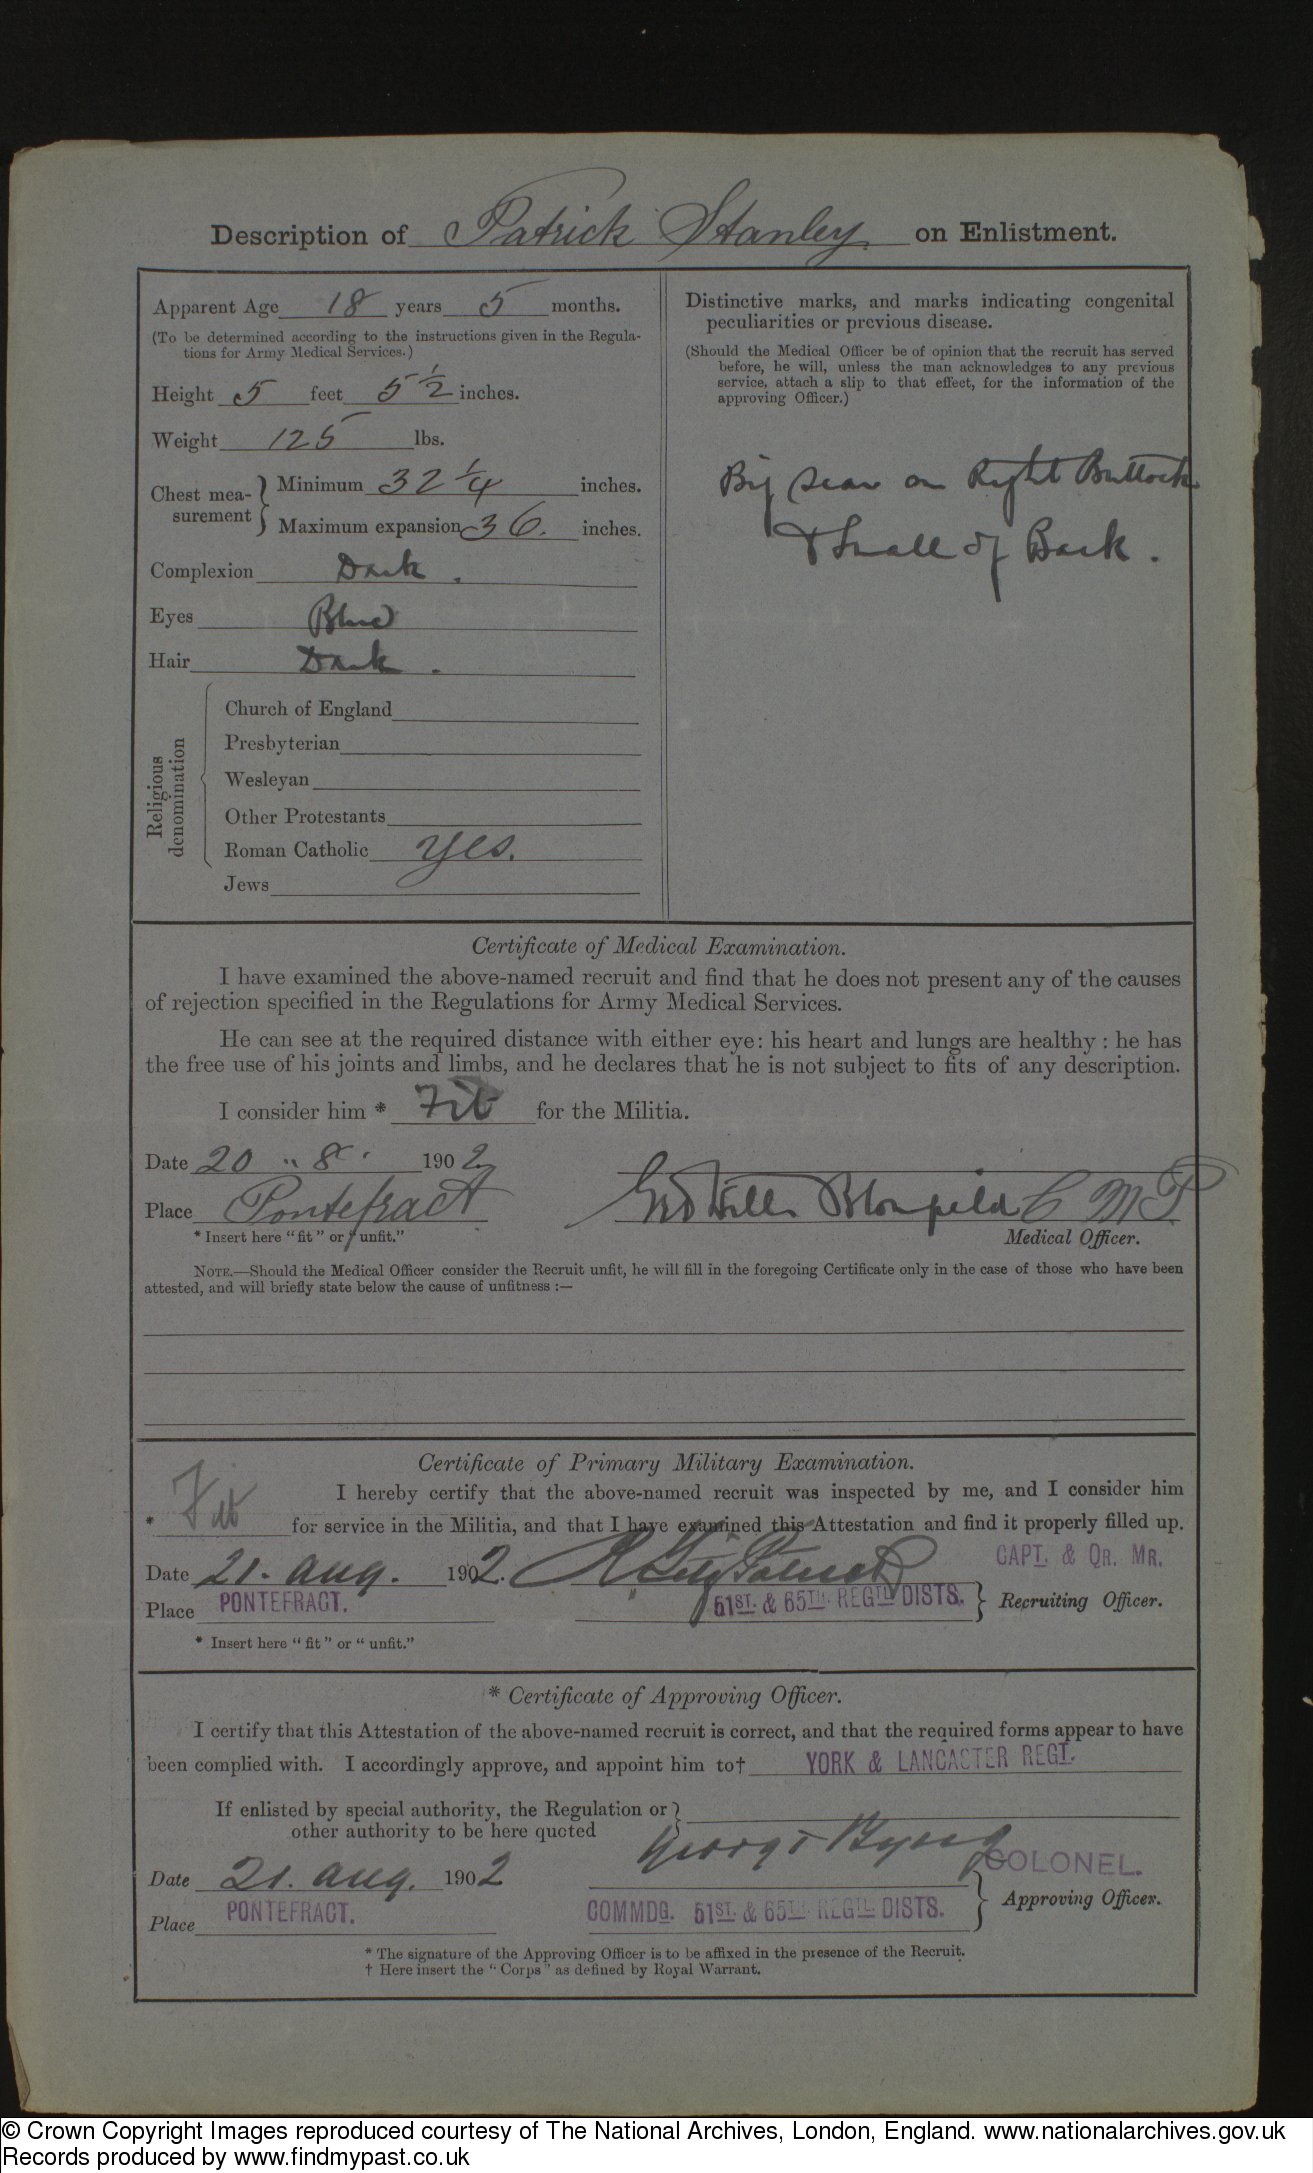 Description of Patrick Stanley on Enlistment.
Apparent Age 18 years 5 months.
(To be determined according to the instructions given in the Regula-
tions for Army Medical Services.)
Height 5 feet 5 1/2 inches.
Weight 125 lbs.
Chest mea-
surement
Minimum 32 1/4 inches.
Maximum expansion 36. inches.
Complexion Dark.
Eyes Blue
Hair Dark.
Religious
denomination
Church of England
Presbyterian
Wesleyan
Other Protestants
Roman Catholic yes.
Jews
Distinctive marks, and marks indicating congenital
peculiarities or previous disease.
(Should the Medical Officer be of opinion that the recruit has served
before, he will, unless the man acknowledges to any previous
service, attach a slip to that effect, for the information of the
approving Officer.)
Big scar on Right Buttock
& Small of Back.
Certificate of Medical Examination.
I have examined the above-named recruit and find that he does not present any of the causes
of rejection specified in the Regulations for Army Medical Services.
He can see at the required distance with either eye: his heart and lungs are healthy: he has
the free use of his joints and limbs, and he declares that he is not subject to fits of any description.
I consider him * Fit for the Militia.
Date 20 " 8. 1902
Place Pontefract
Blomfield C M P
* Insert here "fit" or "unfit."
Medical Officer.
NOTE.—Should the Medical Officer consider the Recruit unfit, he will fill in the foregoing Certificate only in the case of those who have been
attested, and will briefly state below the cause of unfitness:—
Certificate of Primary Military Examination.
I hereby certify that the above-named recruit was inspected by me, and I consider him
* Fit for service in the Militia, and that I have examined this Attestation and find it properly filled up.
Date 21. Aug. 1902.
CAPT. & QR. MR.
Place PONTEFRACT.
51ST. & 65TH. REGTL DISTS.
Recruiting Officer.
* Insert here "fit" or "unfit."
* Certificate of Approving Officer.
I certify that this Attestation of the above-named recruit is correct, and that the required forms appear to have
been complied with. I accordingly approve, and appoint him to† YORK & LANCASTER REGT.
If enlisted by special authority, the Regulation or
other authority to be here quoted
George Byng
COLONEL.
Date 21. Aug. 1902
Approving Officer.
Place PONTEFRACT.
COMMDG. 51ST. & 65TH. REGTL DISTS.
* The signature of the Approving Officer is to be affixed in the presence of the Recruit.
† Here insert the "Corps" as defined by Royal Warrant.
© Crown Copyright Images reproduced courtesy of The National Archives, London, England. www.nationalarchives.gov.uk
Records produced by www.findmypast.co.uk